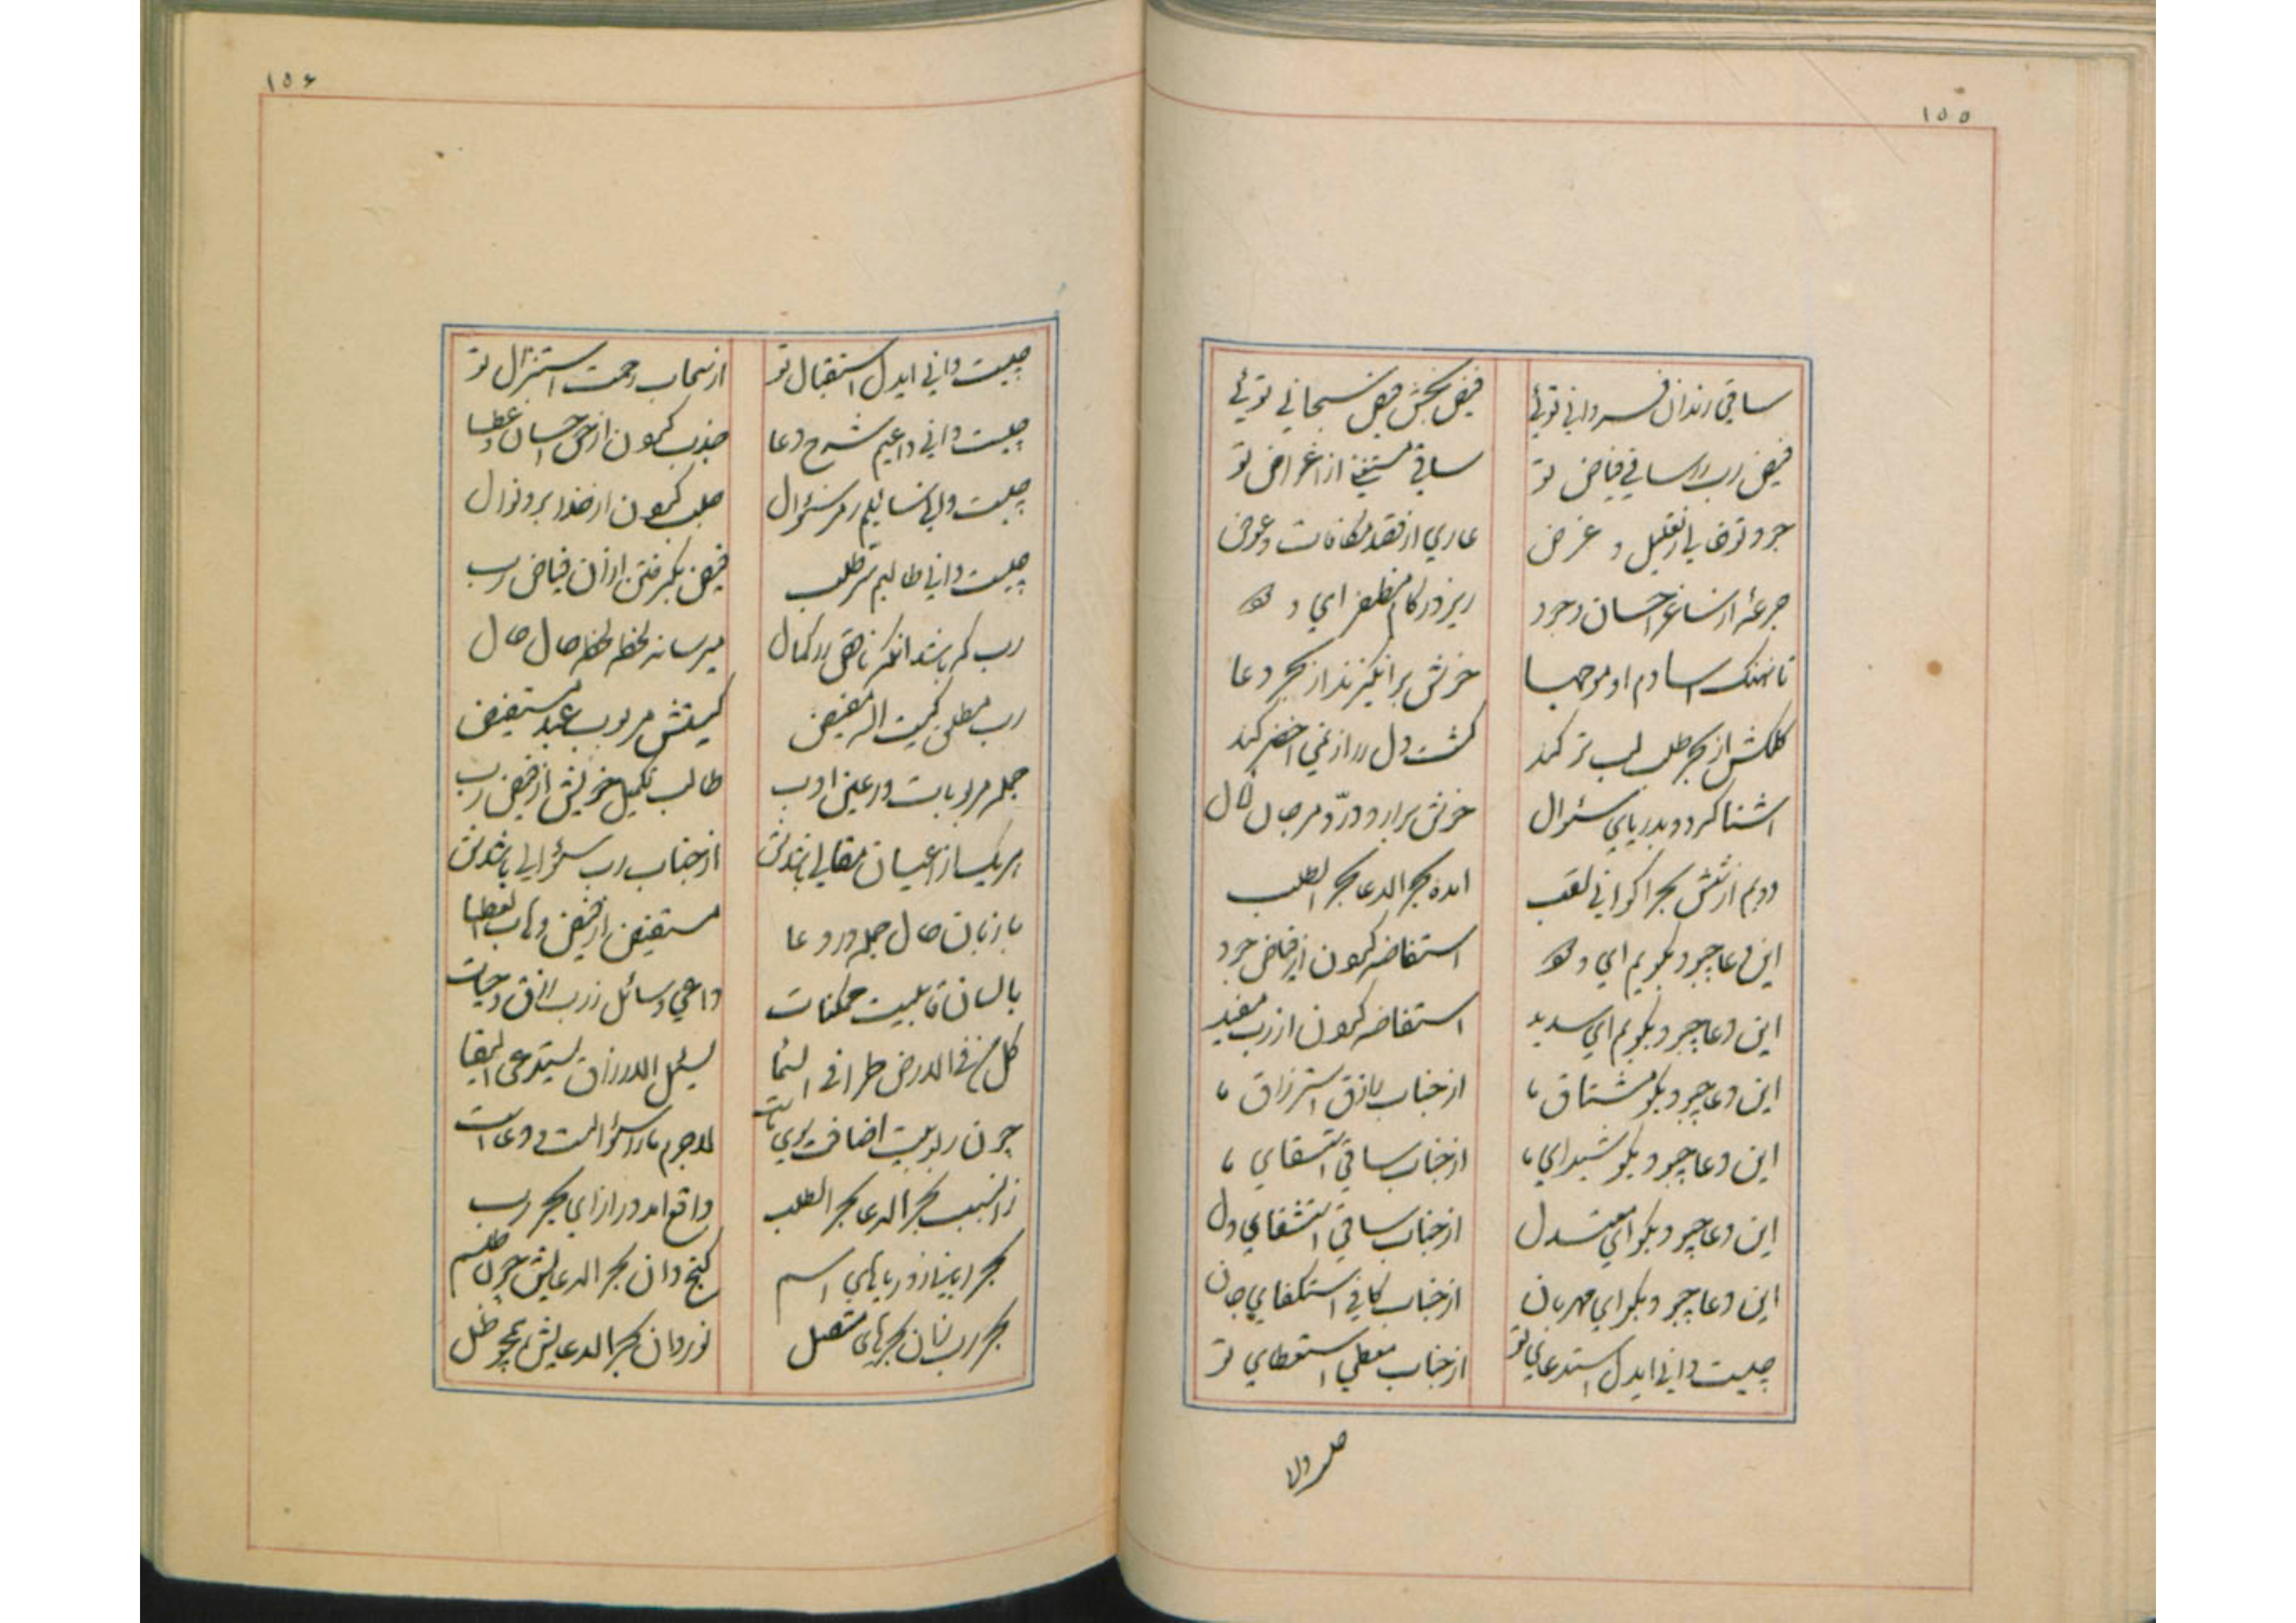 ۱۵۵
ساقی رندان فسردانی توئی فیض بخش فیض سبحانی توئی
فیض رب را ساقی فیاض تو ساقی مستغنی از اغراض تو
جود تو خالی از تعلیل و غرض عاری از قصد مکافات و عوض
جرعهٔ از ساغر احسان و جود ریز در کام مظفر ای ودود
تا نهنک اسا دم او موجها خوش برانکیزند از بحر دعا
کلکش از بحر طلب لب تر کند کشت دل را از نمی اخضر کند
اشنا کردد بدریای سئوال خوش برارد در و مرجان
دویم از شش بحر اکوانی لقب امده بحر الدعا بحر الطلب
این دعا چبود بکویم ای ودود استفاضه کردن از فیاض جود
این دعا چبود بکویم ای سدید استفاضه کردن از رب مفید
این دعا چبود بکو مشتاق ما از جناب رازق استرزاق ما
این دعا چبود بکو شیدای ما از جناب ساقی استسقای ما
این دعا چبود بکو ای معتدل از جناب ساقی استشفای دل
این دعا چبود بکو ای مهربان از جناب کافی استکفای جان
چیست دانی ایدل استدعای تو از جناب معطی استعطای تو
۱۵۶
چیست دانی ایدل استقبال تو از سحاب رحمت استنزال تو
چیست دانی داعیم شرح دعا جذب کردن از حق احسان و عطا
چیست دانی سائلیم رمز سئوال جلب کردن از خدا بر و نوال
چیست دانی طالبم سر طلب فیض بکرفتن از ان فیاض رب
رب که باشد انکه ناقص را کمال میرساند لحظه لحظه حال حال
رب مطلق کیست الله مفیض کیستش مربوب عبد مستفیض
جمله مربوبات در عین ادب طالب تکمیل خویش از فیض رب
هر یک از اعیان مقالی باشدش از جناب رب سئوالی باشدش
با زبان حال جمله در دعا مستفیض از فیض وهاب العطا
با لسان قابلیت ممکنات داعی و سائل ز رب رزق و حیات
کل من فی الارض طرا فی السما یسئل الارزاق یستدعی البقا
چون ربوبیت اضافت لاجرم ما را سئوالست و دعاست
زانسبب بحر الدعا بحر الطلب واقع امد در ازای بحر رب
بحر رب اینان دریاهای اسم کنج دان بحر الدعایش چون طلسم
بحر رب بینان بحرهای متصل نور دان بحر الدعایش همچو ظل